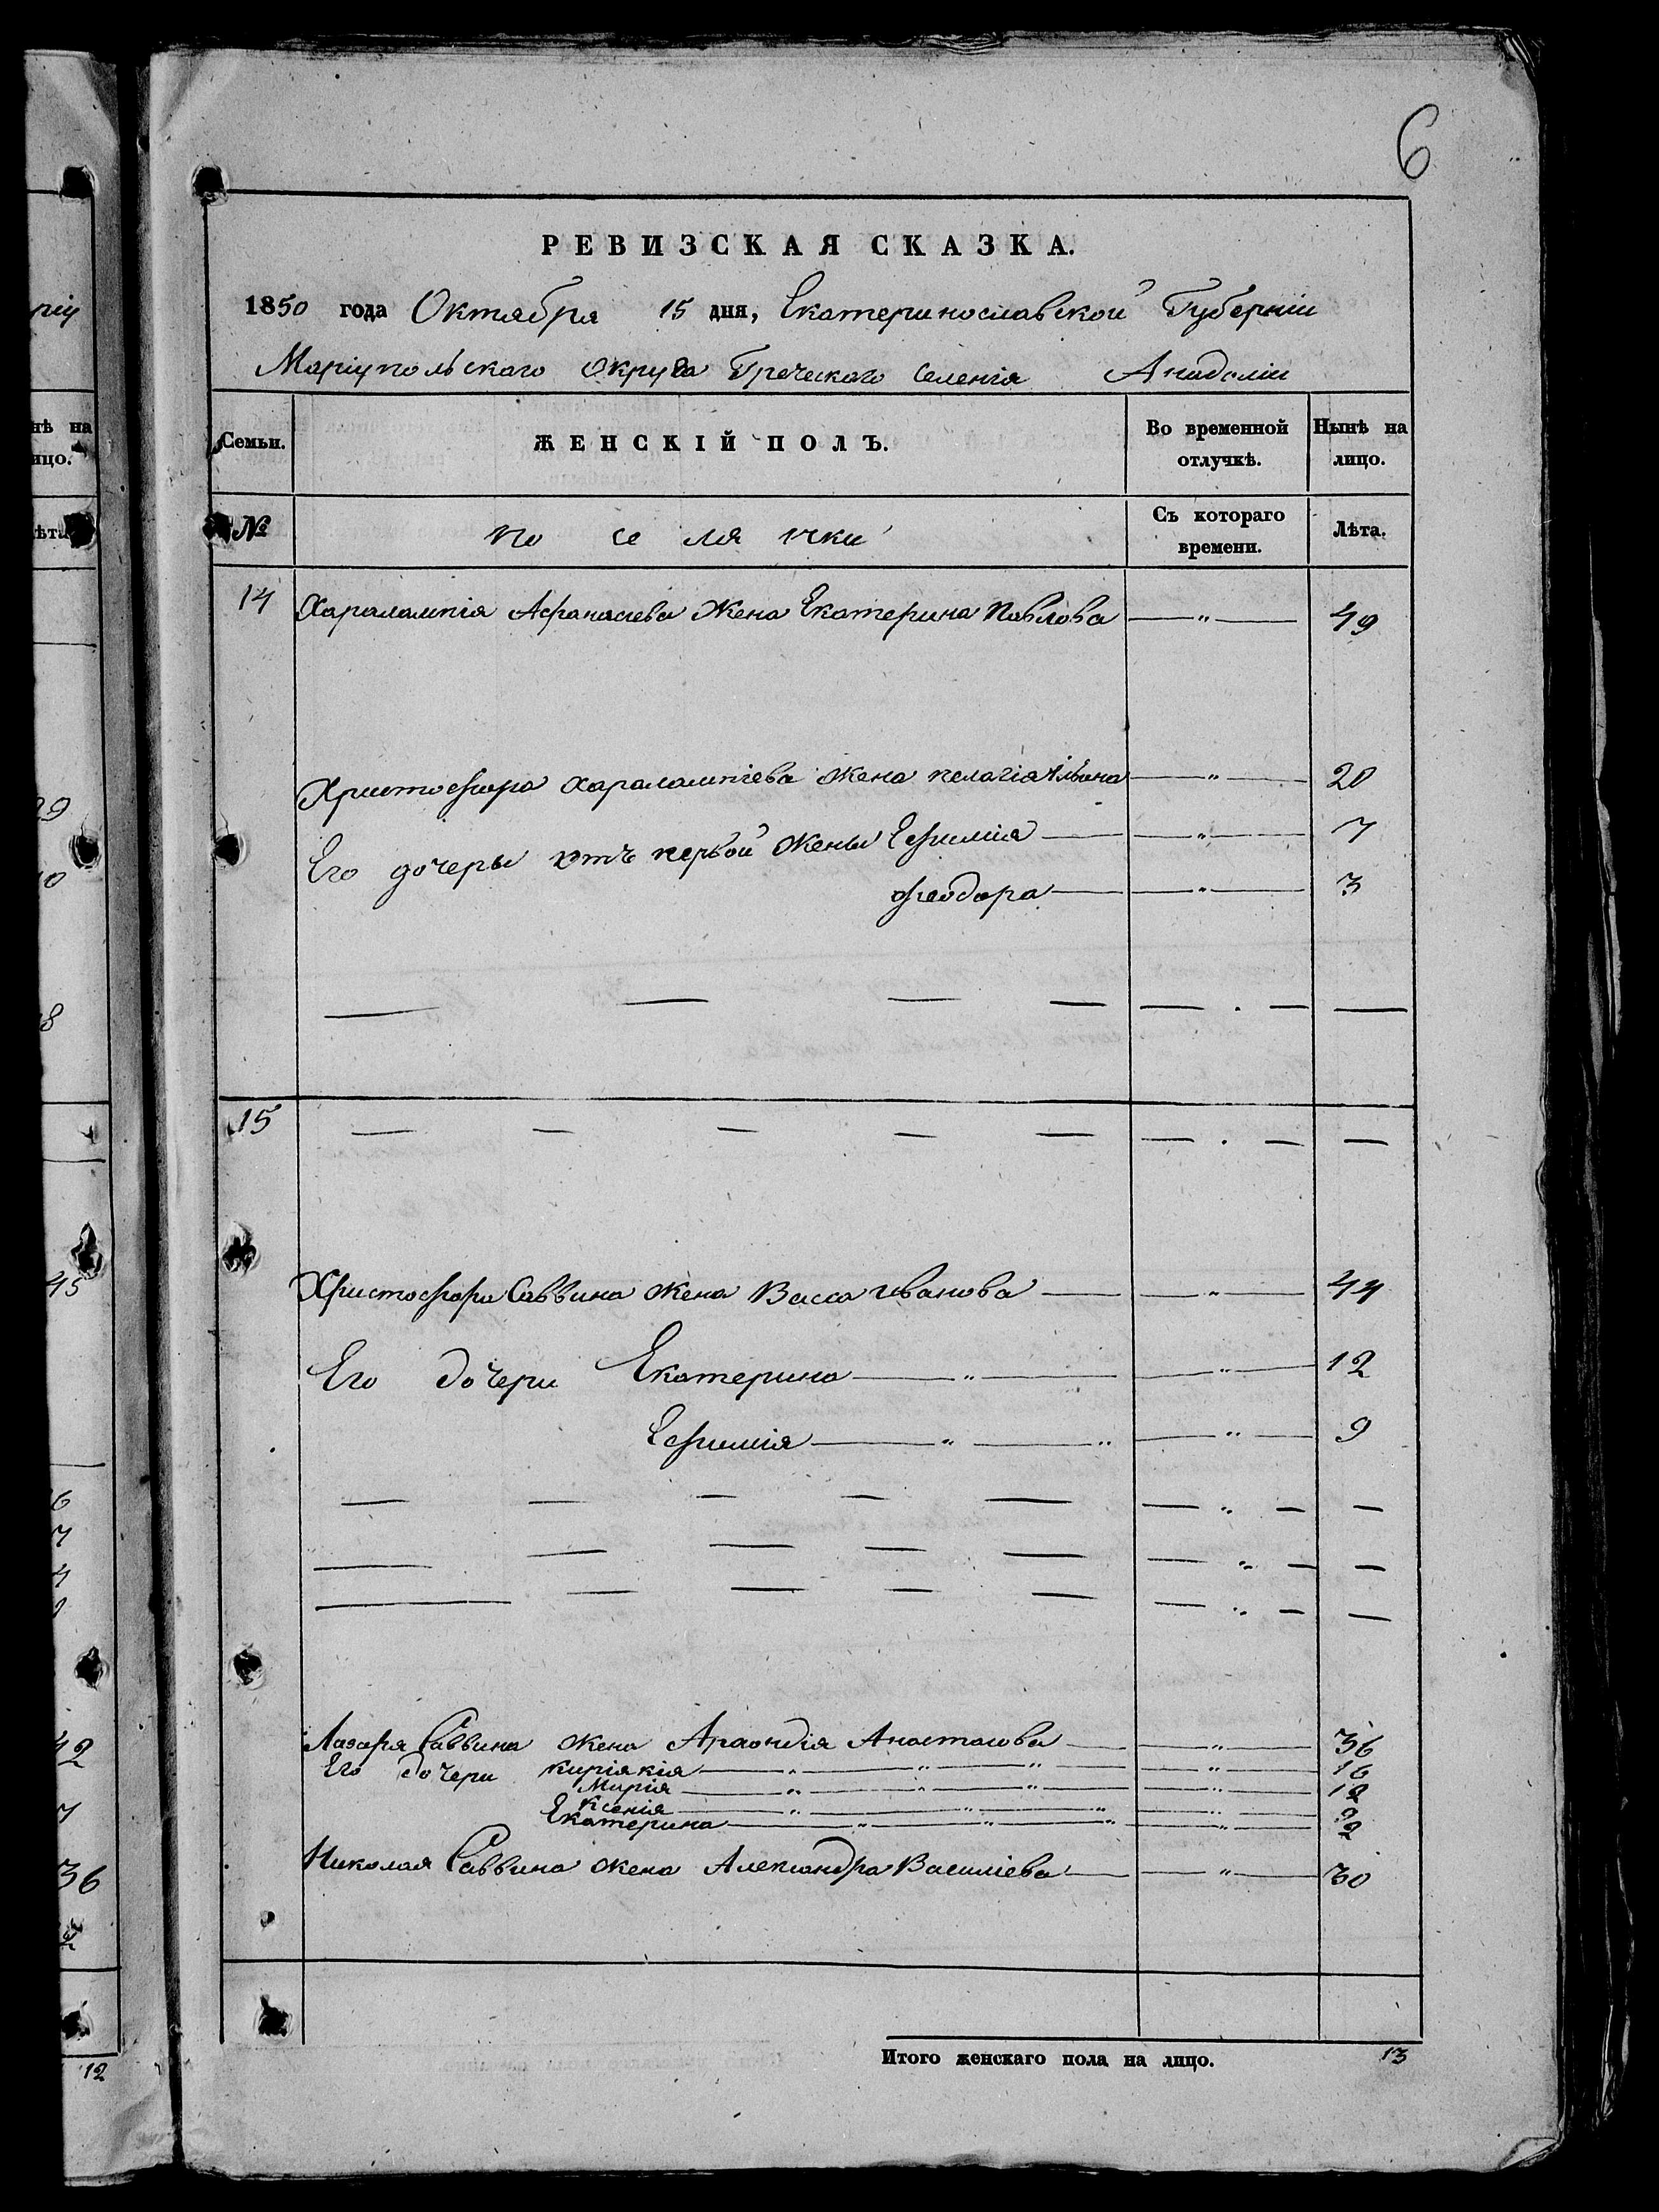 6
РЕВИЗСКАЯ СКАЗКА.
1850 года Октября 15 дня, Екатеринославской Губерніи
Маріупольскаго Округа Греческаго Селенія Анадоліи
Семьи.
ЖЕНСКІЙ ПОЛЪ.
Во временной отлучкѣ.
Ныѣ на лицо.
№
По се ля нки
Съ котораго времени.
Лѣта.
14 Харалампія Афанасіева Жена Екатерина Павлова — " — 49
Христофора Харалампіева Жена Пелагія Ильина — " — 20
Его дочеры отъ первой Жены Ефимія — " — 7
Феодора — " — 3
15
Христофора Саввина Жена Васса Иванова — " — 44
Его дочери Екатерина — " — " — 12
Ефимія — " — " — " — 9
Лазаря Саввина Жена Анастасова — " — 36
Его дочери Киріякія — " — " — " — " — 16
Марія — " — " — " — " — 12
Ксенія — " — " — " — " —
Екатерина — " — " — " — " — 2
Николая Саввина Жена Александра Василіева — " — 30
Итого женскаго пола на лицо. 13
рію
нѣ на
ицо.
ѣта
29
10
8
45
6
7
4
42
7
36
12